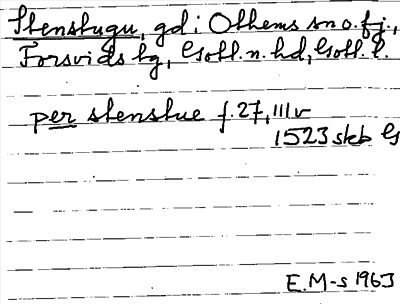 Stenstugu, gd i Othems sn o. fj.,
Forsvids tg, Gotl. n. hd, Gotl. l.
per stenstue f. 27, III v
1523 skb G
E. M-s 1963